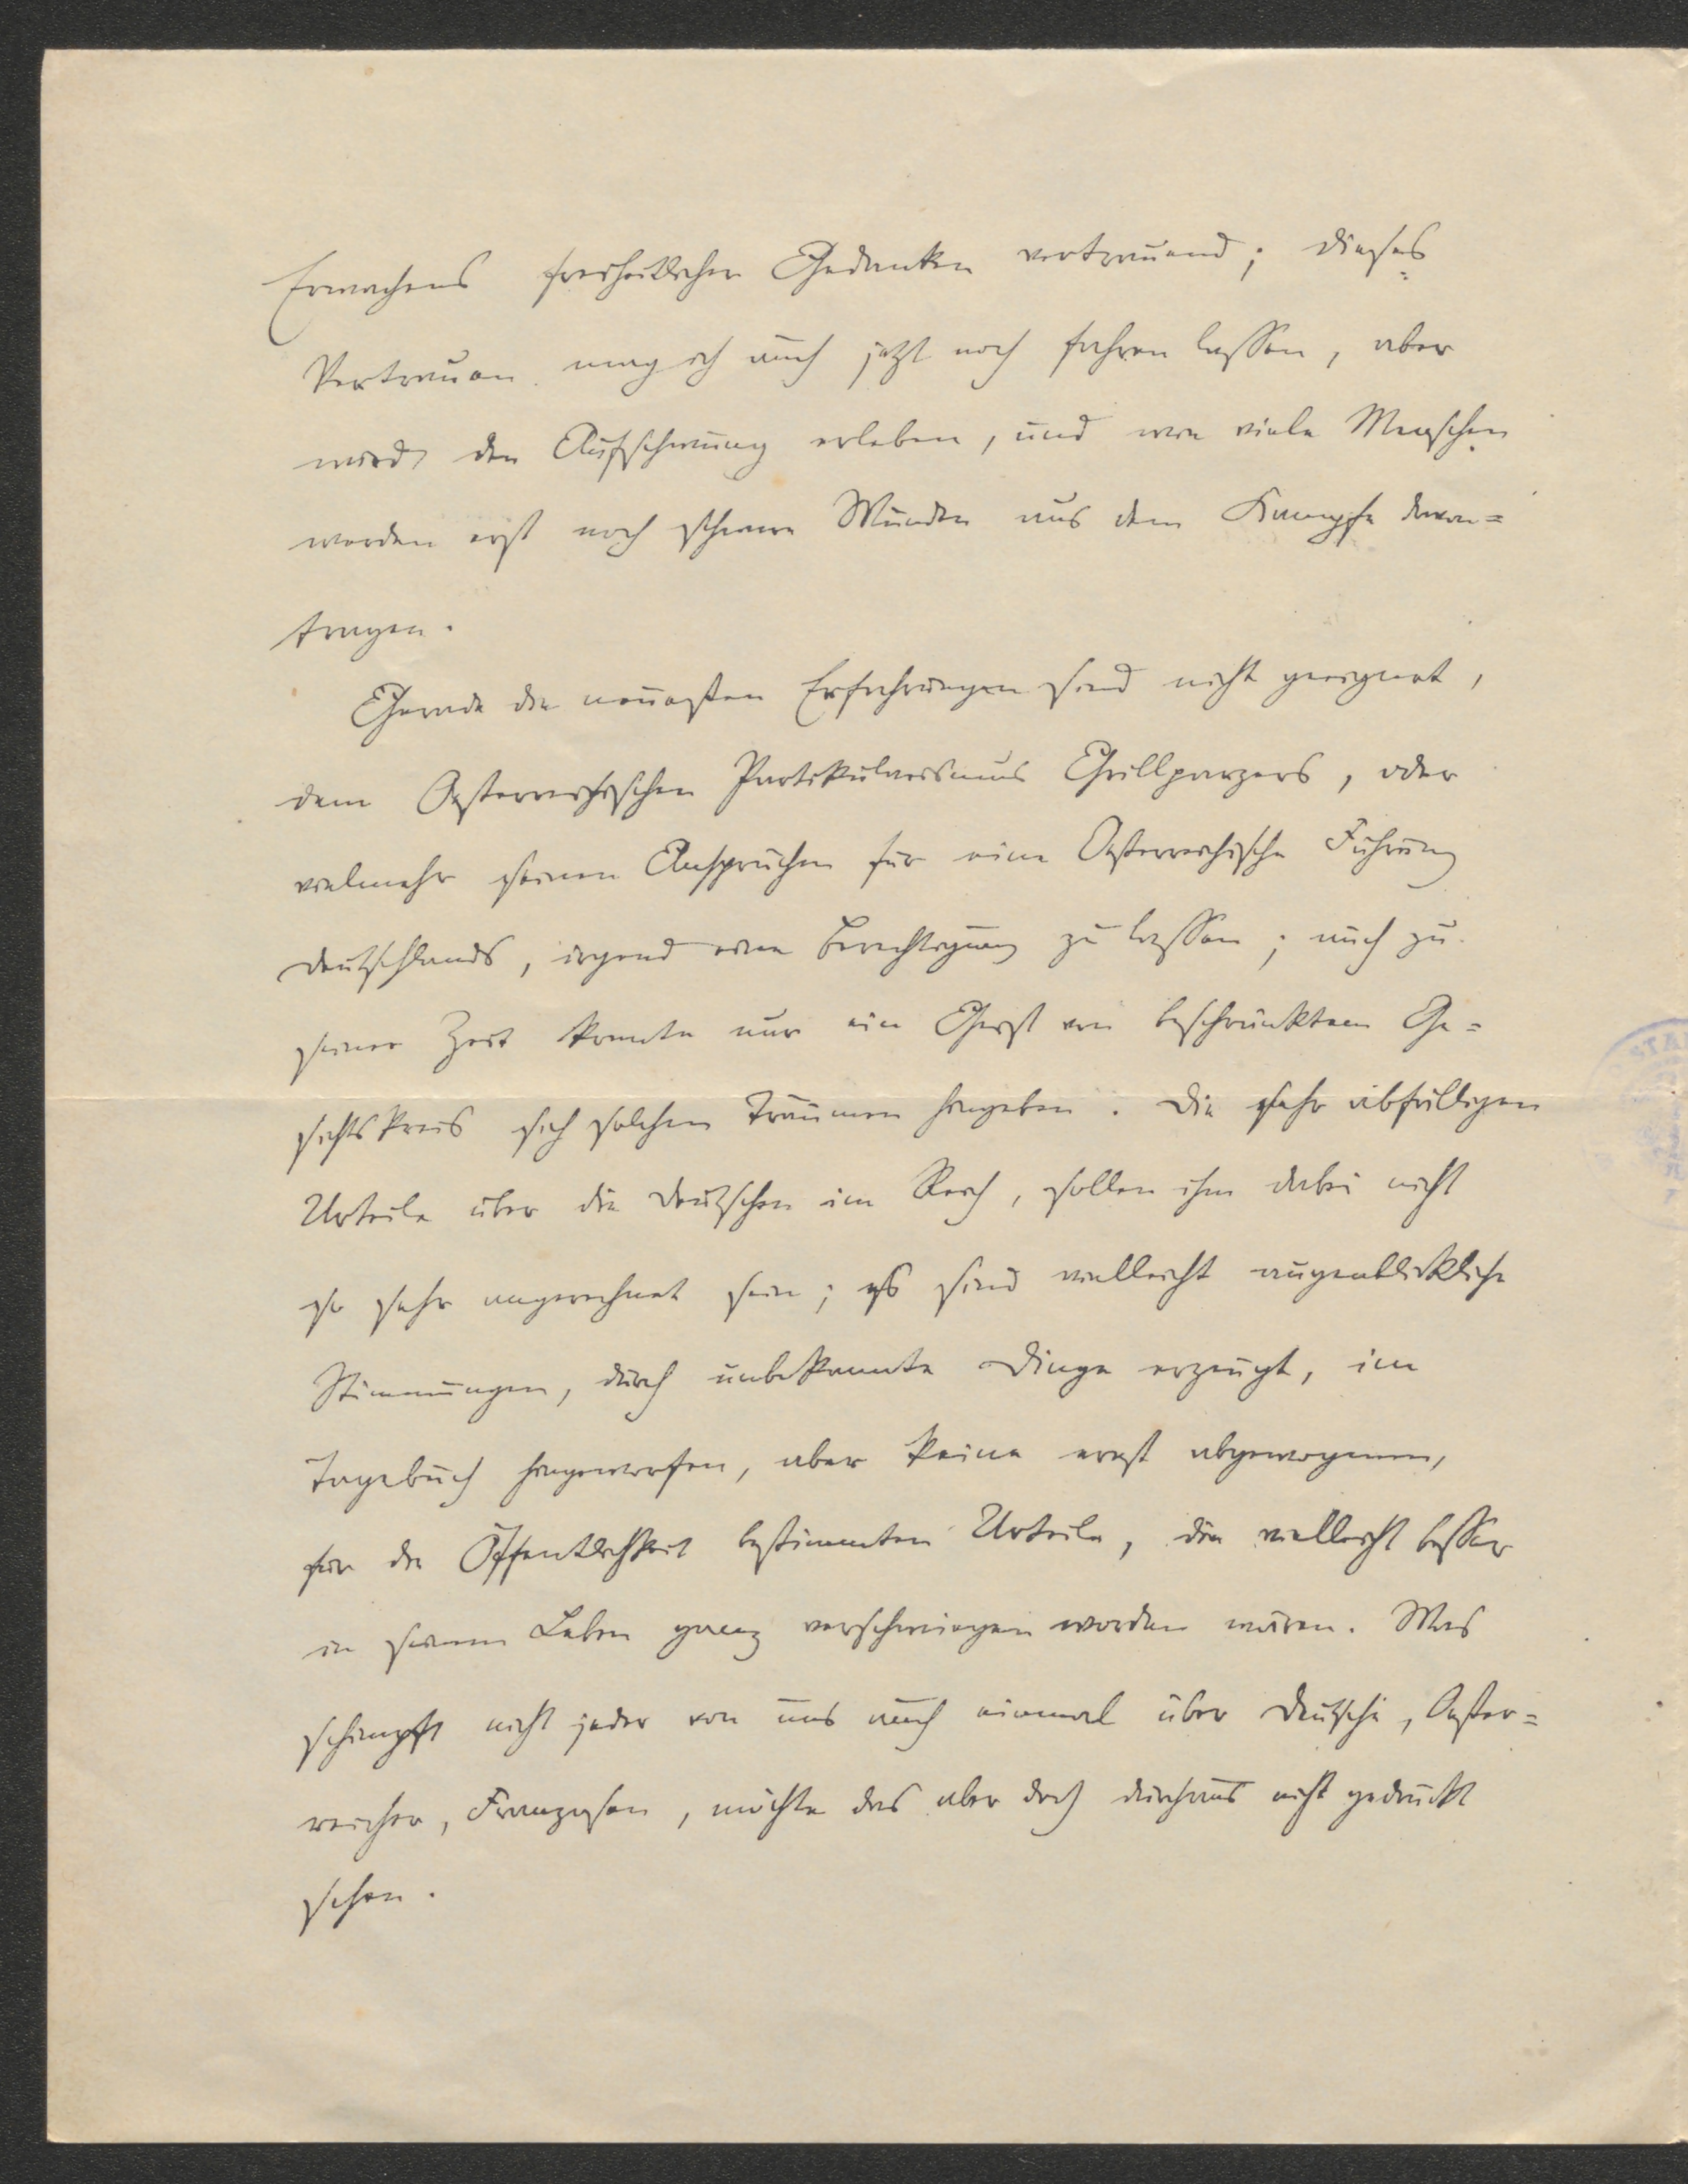 Erwachens freiheitlicher Gedanken vertrauend; dieses
Vertrauen mag ich auch jetzt noch fahren lassen, aber
wird den Aufschwung erleben, und wie viele Menschen
werden erst noch schwere Wunden aus dem Kampfe davon=
tragen.
Gerade die neuesten Erfahrungen sind nicht geeignet,
dem Oesterreichischen Partikularismus Grillparzers, oder
vielmehr seinen Ansprüchen für eine Oesterreichische Führung
Deutschlands, irgend eine Berechtigung zu lassen; auch zu
seiner Zeit konnte nur ein Geist von beschränktem Ge=
sichtskreis sich solchen Träumen hingeben. Die sehr abfälligen
Urteile über die Deutschen im Reich, sollen ihm dabei nicht
so sehr angerechnet sein; es sind vielleicht augenblickliche
Stimmungen, durch unbekannte Dinge erzeugt, im
Tagebuch hingeworfen, aber keine ernst abgewogenen,
für die Öffentlichkeit bestimmten Urteile, die vielleicht besser
in seinem Leben ganz verschwiegen worden wären. Was
schimpft nicht jeder von uns auch einmal über Deutsche, Oester=
reicher, Franzosen, möchte das aber doch durchaus nicht gedruckt
sehen.